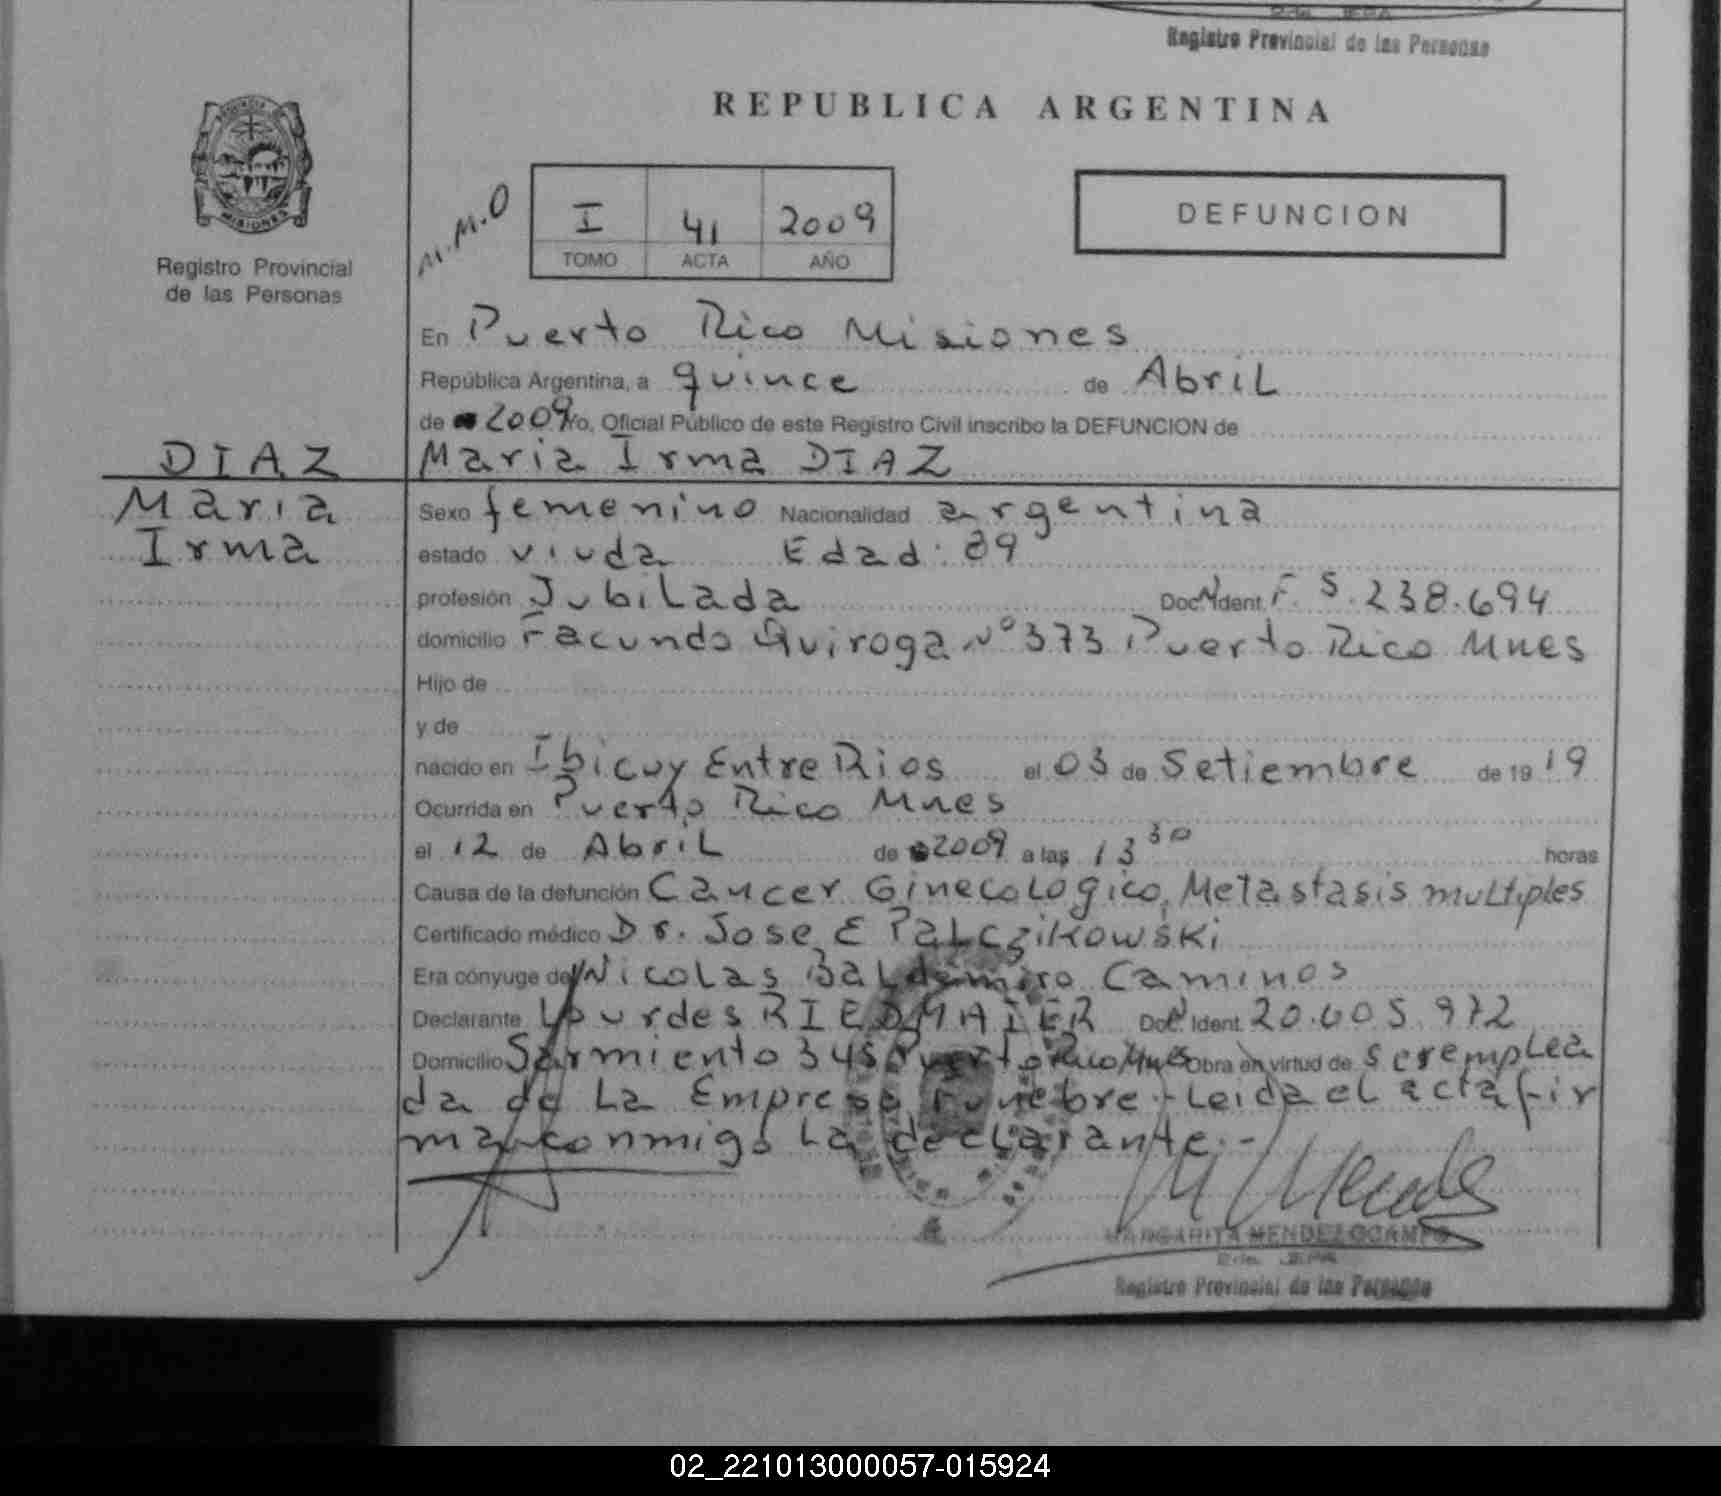 Registro Provincial de las Personas
REPUBLICA ARGENTINA
M.M.O
I 41 2009
TOMO ACTA AÑO
DEFUNCION
PROVINCIA
MISIONES
Registro Provincial
de las Personas
En Puerto Rico Misiones
República Argentina, a quince de Abril
de 2009 Yo, Oficial Público de este Registro Civil inscribo la DEFUNCION de
DIAZ
Maria
Irma
Maria Irma DIAZ
Sexo femenino Nacionalidad argentina
estado viuda Edad: 89
profesión Jubilada Doc. Ident. F. 5.238.694
domicilio Facundo Quiroga Nº 373 Puerto Rico Mnes
Hijo de
y de
nacido en Ibicuy Entre Rios el 03 de Setiembre de 19 19
Ocurrida en Puerto Rico Mnes
el 12 de Abril de 2009 a las 13 30 horas
Causa de la defunción Cancer Ginecologico, Metastasis multiples
Certificado médico Dr. Jose E Palczikowski
Era cónyuge de Nicolas Baldomiro Caminos
Declarante Lourdes RIEDMAIER Doc. Ident. 20.605.972
Domicilio Sarmiento 345 Puerto Rico Mnes Obra en virtud de ser emplea
da de La Empresa Funebre - Leida el acta fir
ma conmigo la declarante.-
MARGARITA MENDEZ OCAMPO
Registro Provincial de las Personas
02_221013000057-015924